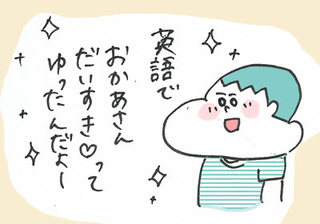 英語で
おかあさん
だいすき♡って
ゆったんだよー